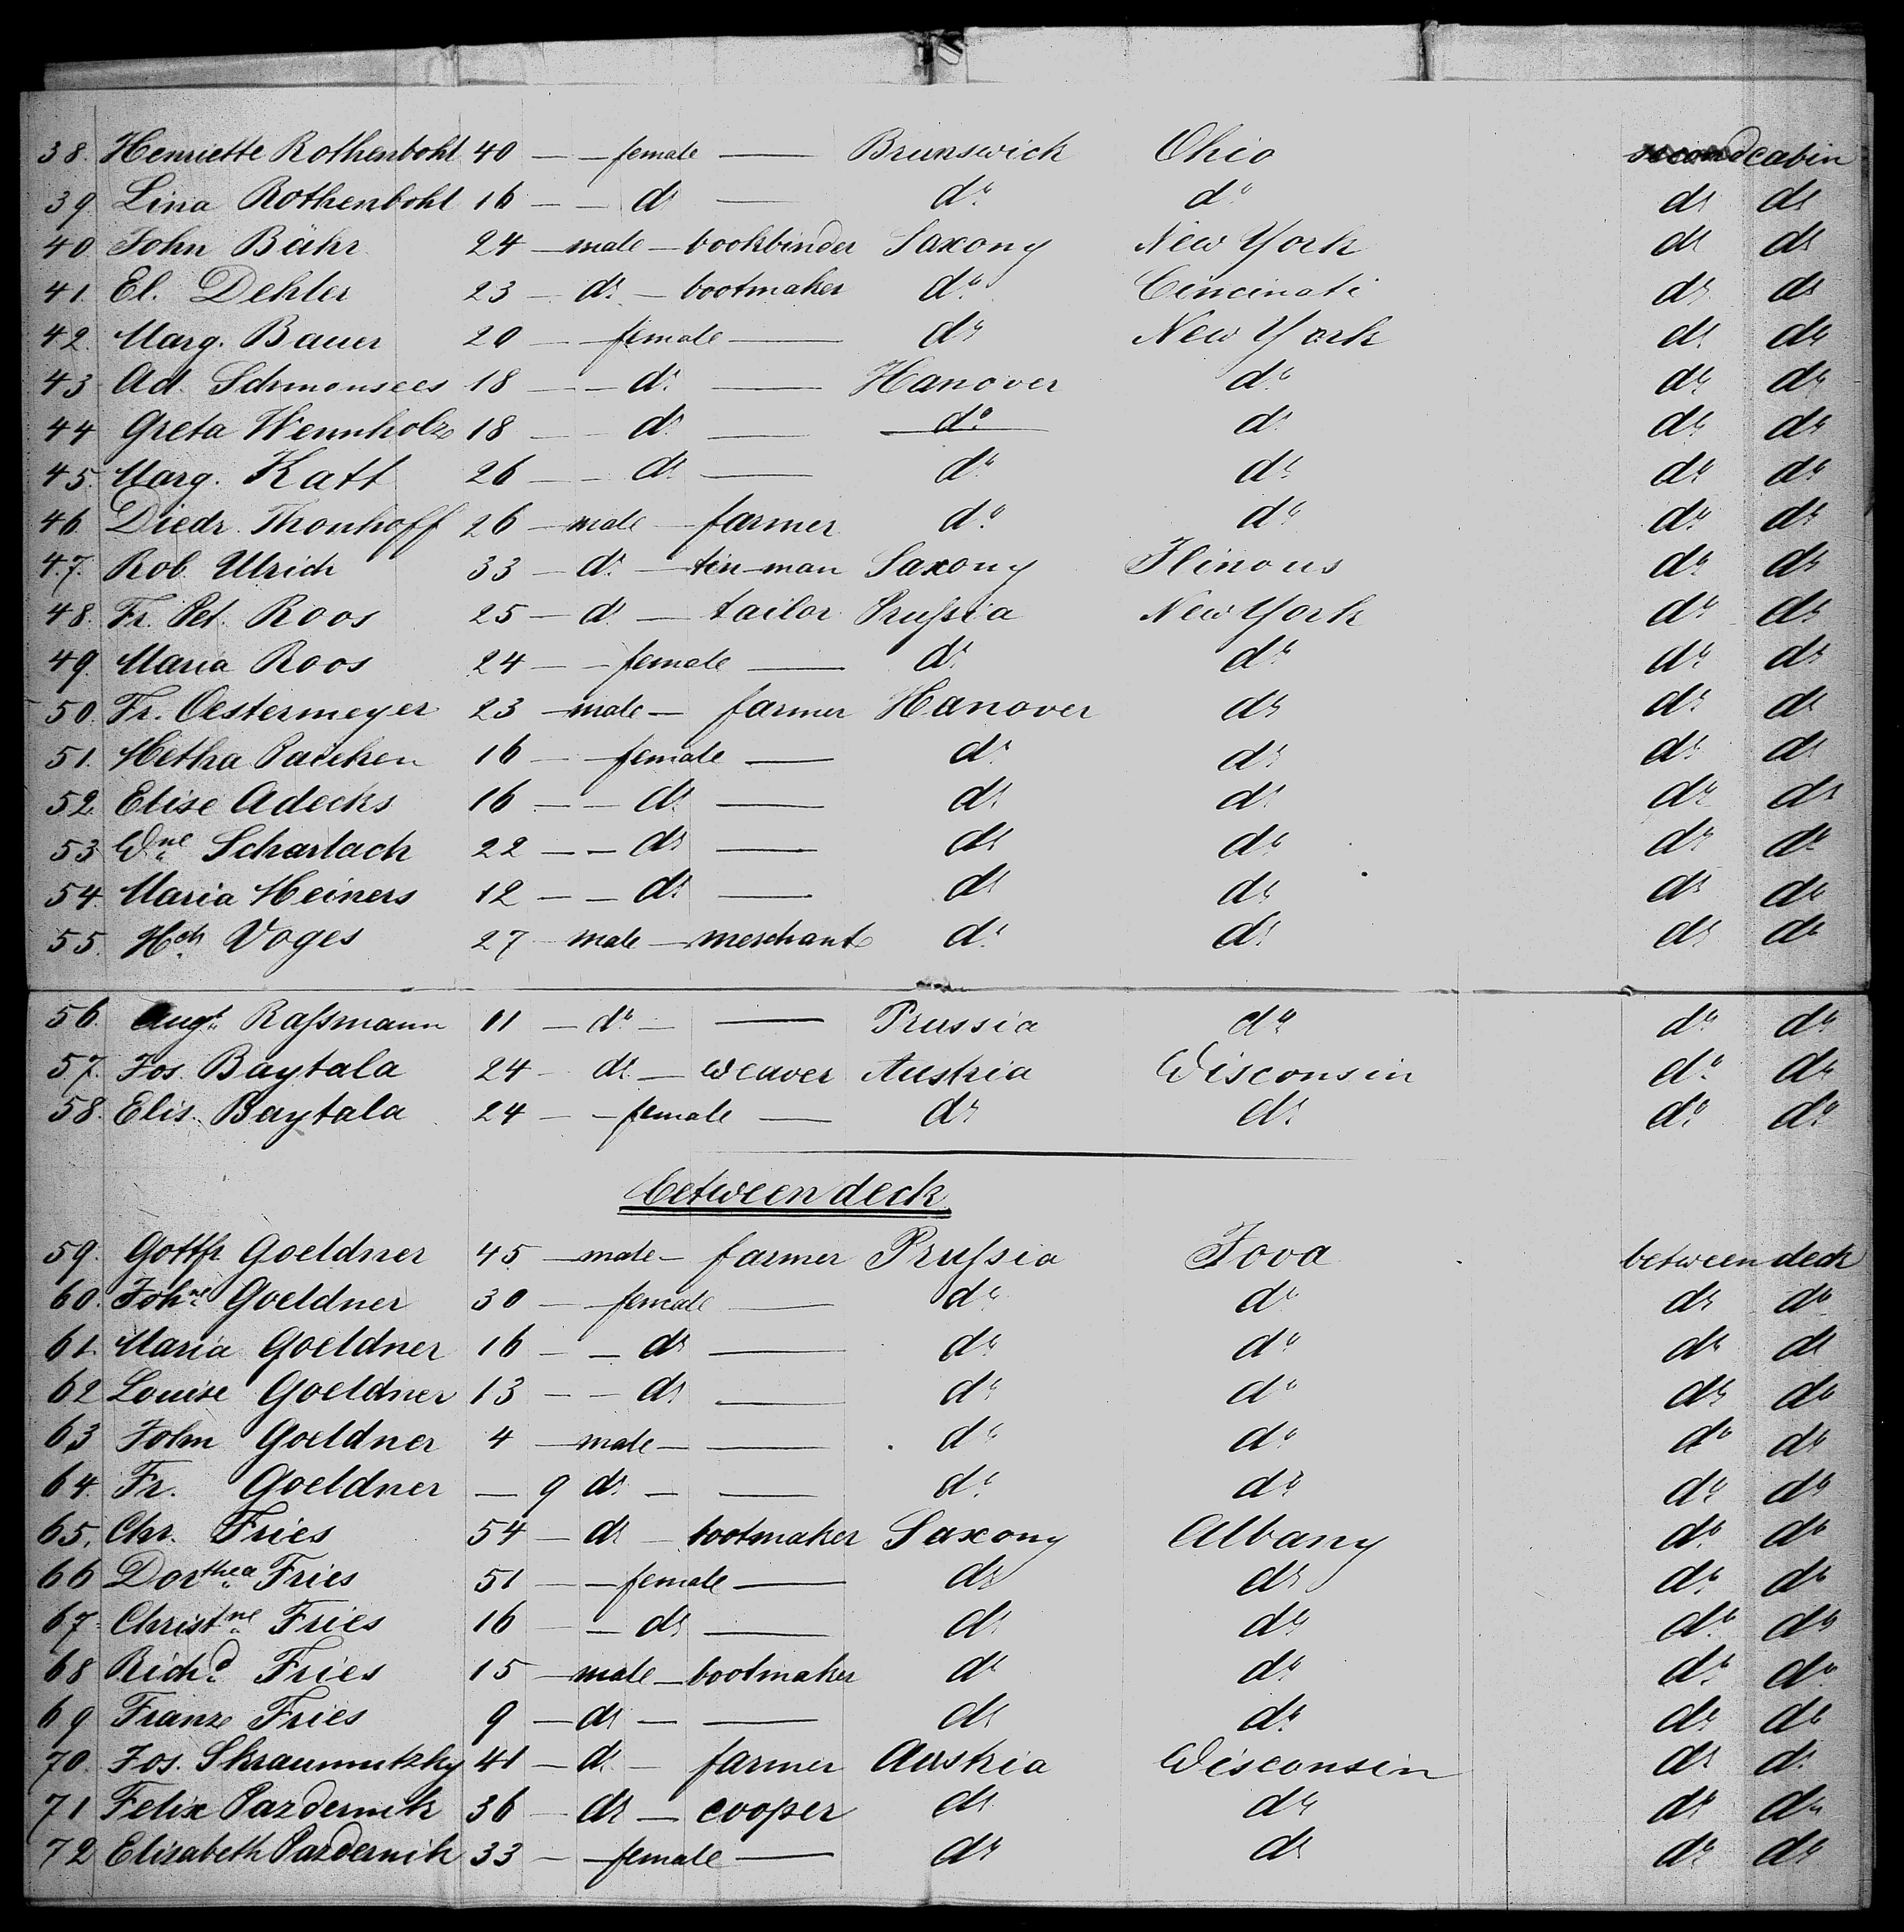 38. Henriette Rothenbohl 40 — — female — Brunswick Ohio second cabin
39. Lina Rothenbohl 16 — — do — do do do do
40. John Bähr 24 — male — bookbinder Saxony New York do do
41. El. Dehler 23 — do — bootmaker do Cincinati do do
42. Marg. Bauer 20 — female — do New York do do
43 Ad. Schmonsees 18 — — do — Hanover do do do
44 Greta Wennholz 18 — — do — do do do do
45. Marg. Katt 26 — — do — do do do do
46. Diedr. Thonhoff 26 — male — farmer do do do do
47. Rob. Ulrich 33 — do — tin-man Saxony Ilinous do do
48. Fr. Pet. Roos 25 — do — tailor Prussia New York do do
49. Maria Roos 24 — — female — do do do do
50. Fr. Oestermeyer 23 — male — farmer Hanover do do do
51. Metha 16 — — female — do do do do
52. Elise Adecks 16 — — do — do do do do
53 Wne Scharlach 22 — — do — do do do do
54. Maria Meiners 12 — — do — do do do do
55. Hch Voges 27 — male — merchant do do do do
56. Augt Rassmann 11 — do — — Prussia do do do
57. Jos. Baytala 24 — do — weaver Austria Wisconsin do do
58. Elis. Baytala 24 — — female — do do do do
between deck
59. Gottfr Goeldner 45 — male — farmer Prussia Iova between deck
60. Johne Goeldner 30 — female — do do do do
61. Maria Goeldner 16 — — do — do do do do
62 Louise Goeldner 13 — — do — do do do do
63 John Goeldner 4 — male — — do do do do
64. Fr. Goeldner — 9 do — — do do do do
65. Chr. Fries 54 — do — bootmaker Saxony Albany do do
66 Dorthea Fries 51 — — female — do do do do
67. Christne Fries 16 — — do — do do do do
68 Richd Fries 15 — male — bootmaker do do do do
69 Franz Fries 9 — do — — do do do do
70. Jos. Skraumutzky 41 — do — farmer Austria Wisconsin do do
71 Felix Pazdernik 36 — do — cooper do do do do
72 Elisabeth Pazdernik 33 — — female — do do do do